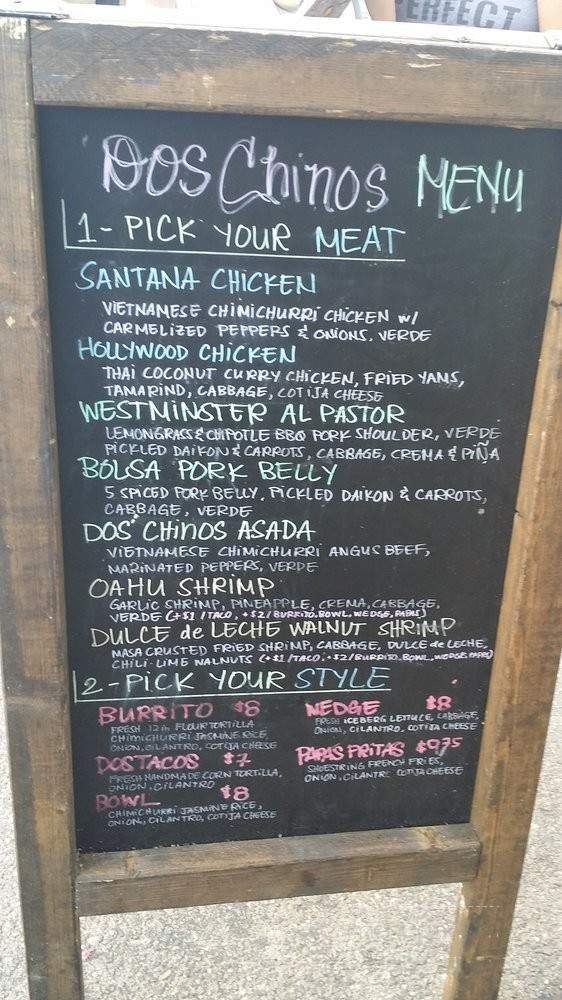 PERFECT
DOS Chinos MENU
1- PICK YOUR MEAT
SANTANA CHICKEN
VIETNAMESE CHIMICHURRI CHICKEN W/
CARMELIZED PEPPERS & ONIONS. VERDE
HOLLYWOOD CHICKEN
THAI COCONUT CURRY CHICKEN, FRIED YAMS,
TAMARIND, CABBAGE, COTIJA CHEESE
WESTMINSTER AL PASTOR
LEMONGRASS & CHIPOTLE BBQ PORK SHOULDER, VERDE
PICKLED DAIKON & CARROTS, CABBAGE, CREMA & PIÑA
BOLSA PORK BELLY
5 SPICED PORK BELLY, PICKLED DAIKON & CARROTS,
CABBAGE, VERDE
DOS Chinos ASADA
VIETNAMESE CHIMICHURRI ANGUS BEEF,
MARINATED PEPPERS, VERDE
OAHU SHRIMP
GARLIC SHRIMP, PINEAPPLE, CREMA, CABBAGE,
VERDE (+$1/TACO, +$2/BURRITO, BOWL, WEDGE, PAPAS)
DULCE de LECHE WALNUT SHRIMP
MASA CRUSTED FRIED SHRIMP, CABBAGE, DULCE de LECHE,
CHILI-LIME WALNUTS (+$1/TACO, +$2/BURRITO, BOWL, WEDGE, PAPAS)
2-PICK YOUR STYLE
BURRITO $8
FRESH 12in FLOUR TORTILLA
CHIMICHURRI JASMINE RICE,
ONION, CILANTRO, COTIJA CHEESE
DOS TACOS $7
FRESH HANDMADE CORN TORTILLA,
ONION, CILANTRO
BOWL $8
CHIMICHURRI JASMINE RICE,
ONION, CILANTRO, COTIJA CHEESE
WEDGE $8
FRESH ICEBERG LETTUCE, CABBAGE,
ONION, CILANTRO, COTIJA CHEESE
PAPAS FRITAS $9.75
SHOESTRING FRENCH FRIES,
ONION, CILANTRO COTIJA CHEESE